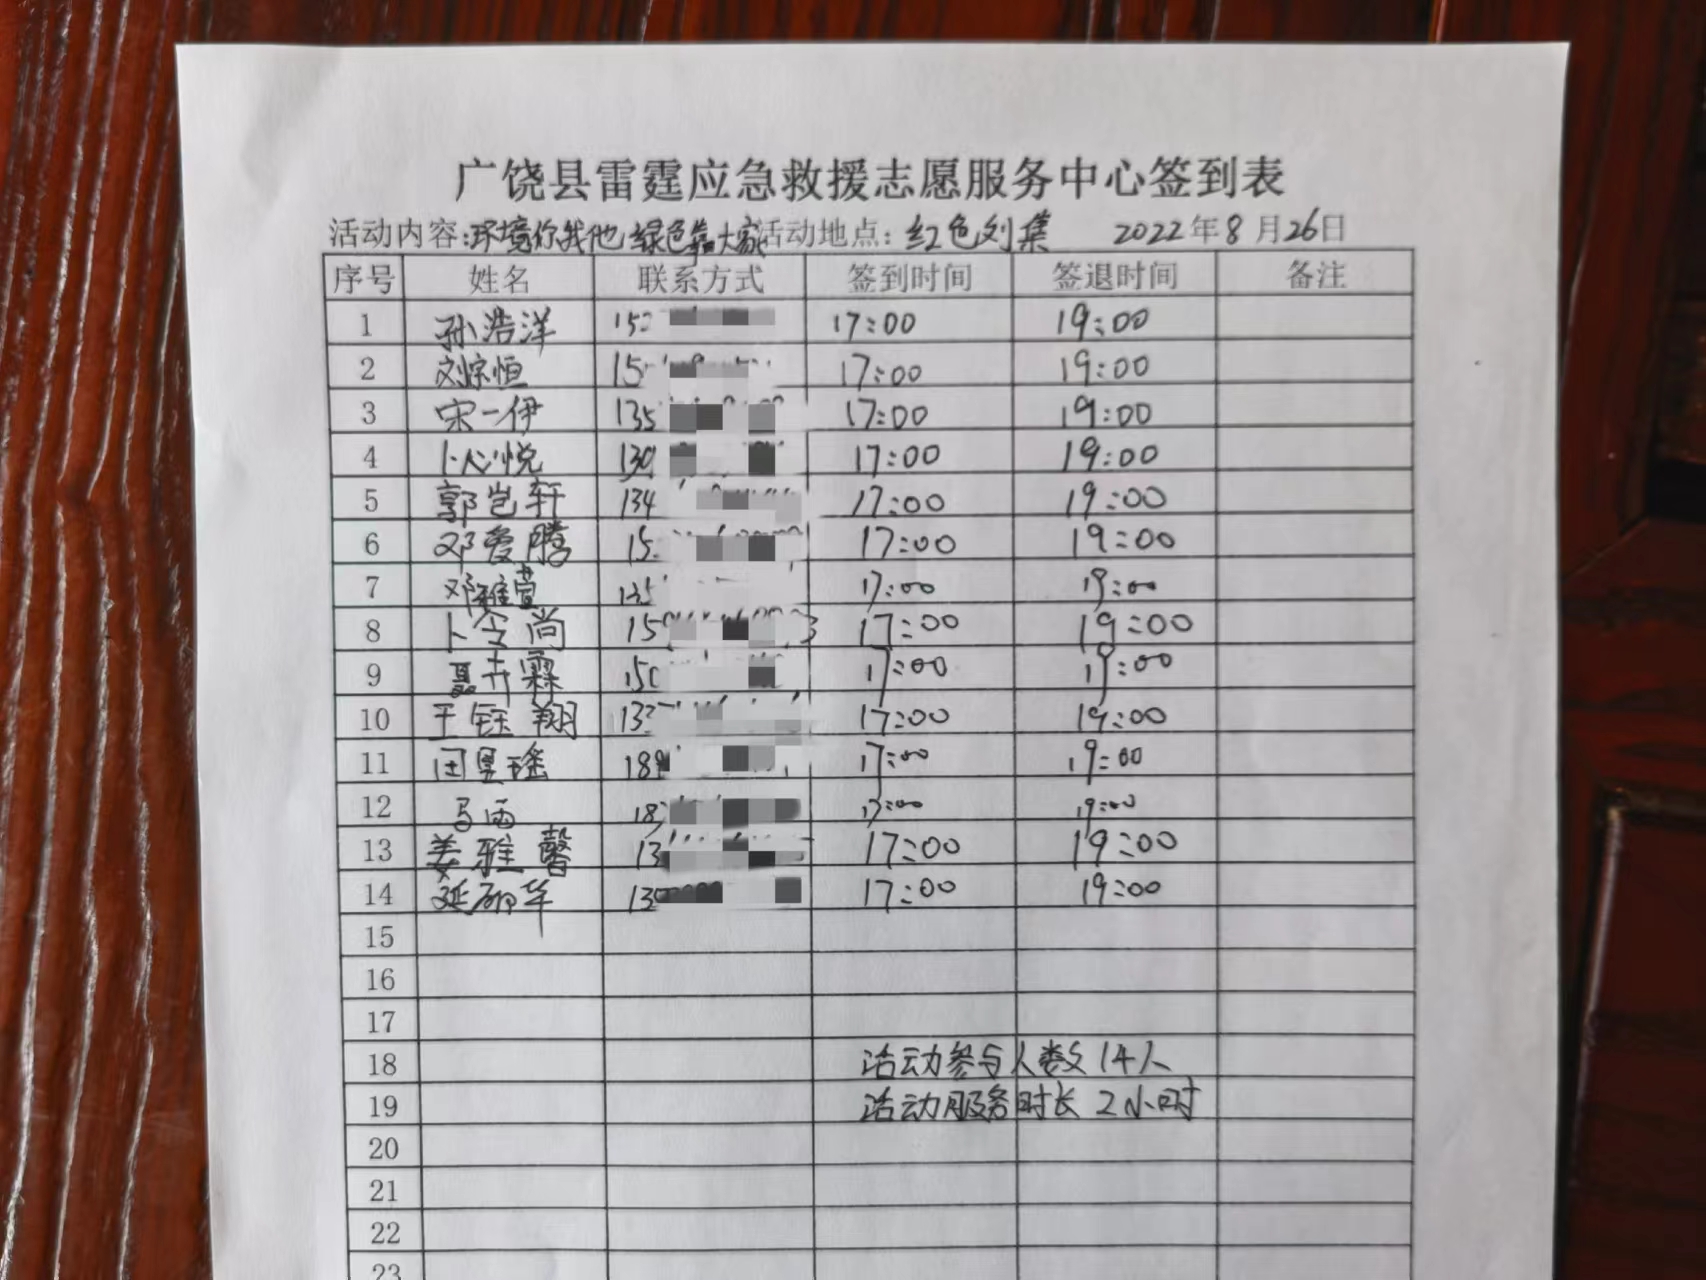 广饶县雷霆应急救援志愿服务中心签到表
活动内容:环境你我他 绿色靠大家 活动地点:红色刘集 2022年8月26日
序号 姓名 联系方式 签到时间 签退时间 备注
1 孙浩洋 152 17:00 19:00
2 刘综恒 15 17:00 19:00
3 宋一伊 135 17:00 19:00
4 卜心悦 130 17:00 19:00
5 郭岂轩 134 17:00 19:00
6 邓爱腾 15 17:00 19:00
7 邓雅萱 135 17:00 19:00
8 卜令尚 150 17:00 19:00
9 聂卉霖 150 17:00 19:00
10 王钰翔 13 17:00 19:00
11 田昱瑶 189 17:00 19:00
12 马雨 18 17:00 19:00
13 姜雅馨 13 17:00 19:00
14 延丽华 130 17:00 19:00
15
16
17
18 活动参与人数14人
19 活动服务时长 2小时
20
21
22
23